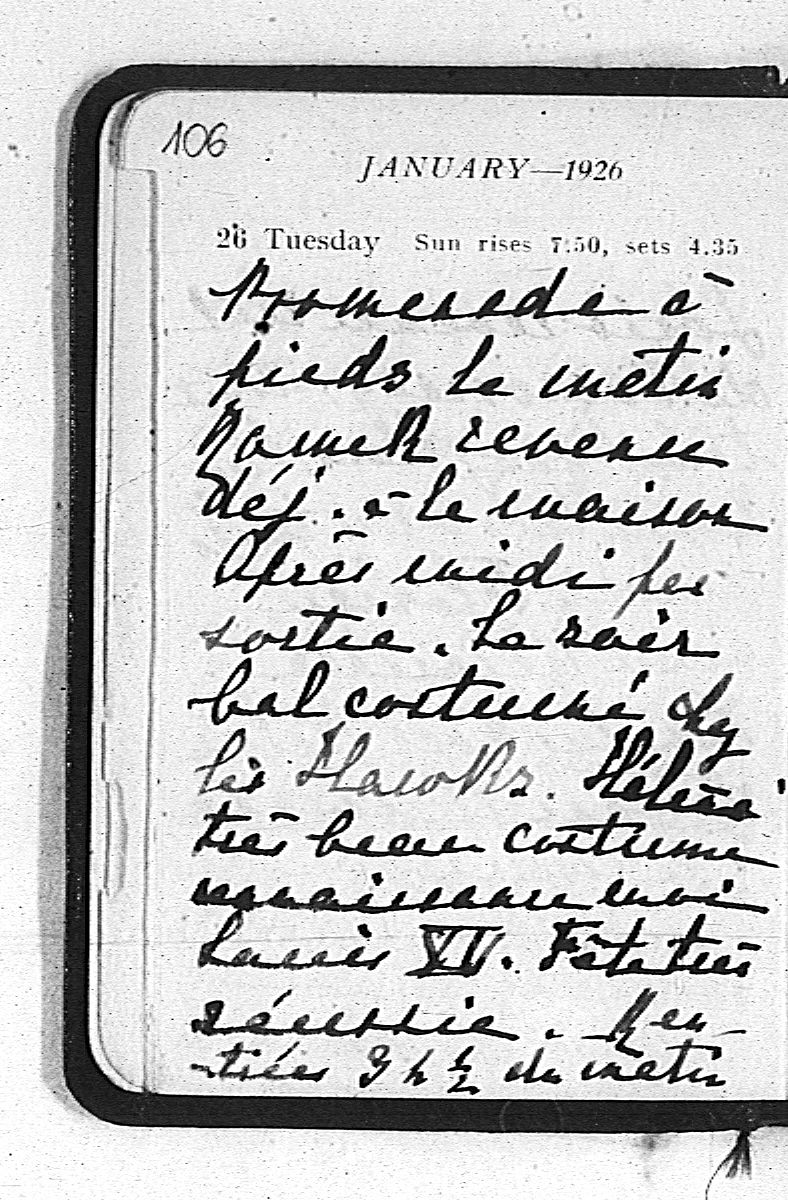 106
JANUARY—1926
26 Tuesday Sun rises 7.50, sets 4.35
Promenade à
pieds le matin
revenu
déj. à la maison
Après midi pas
sortie. Le soir
bal costumé chez
les Hawks. Hélène
très beau costume
renaissance moi
Louis XV. Fête très
réussie. Ren-
-trées 3 h ½ du matin